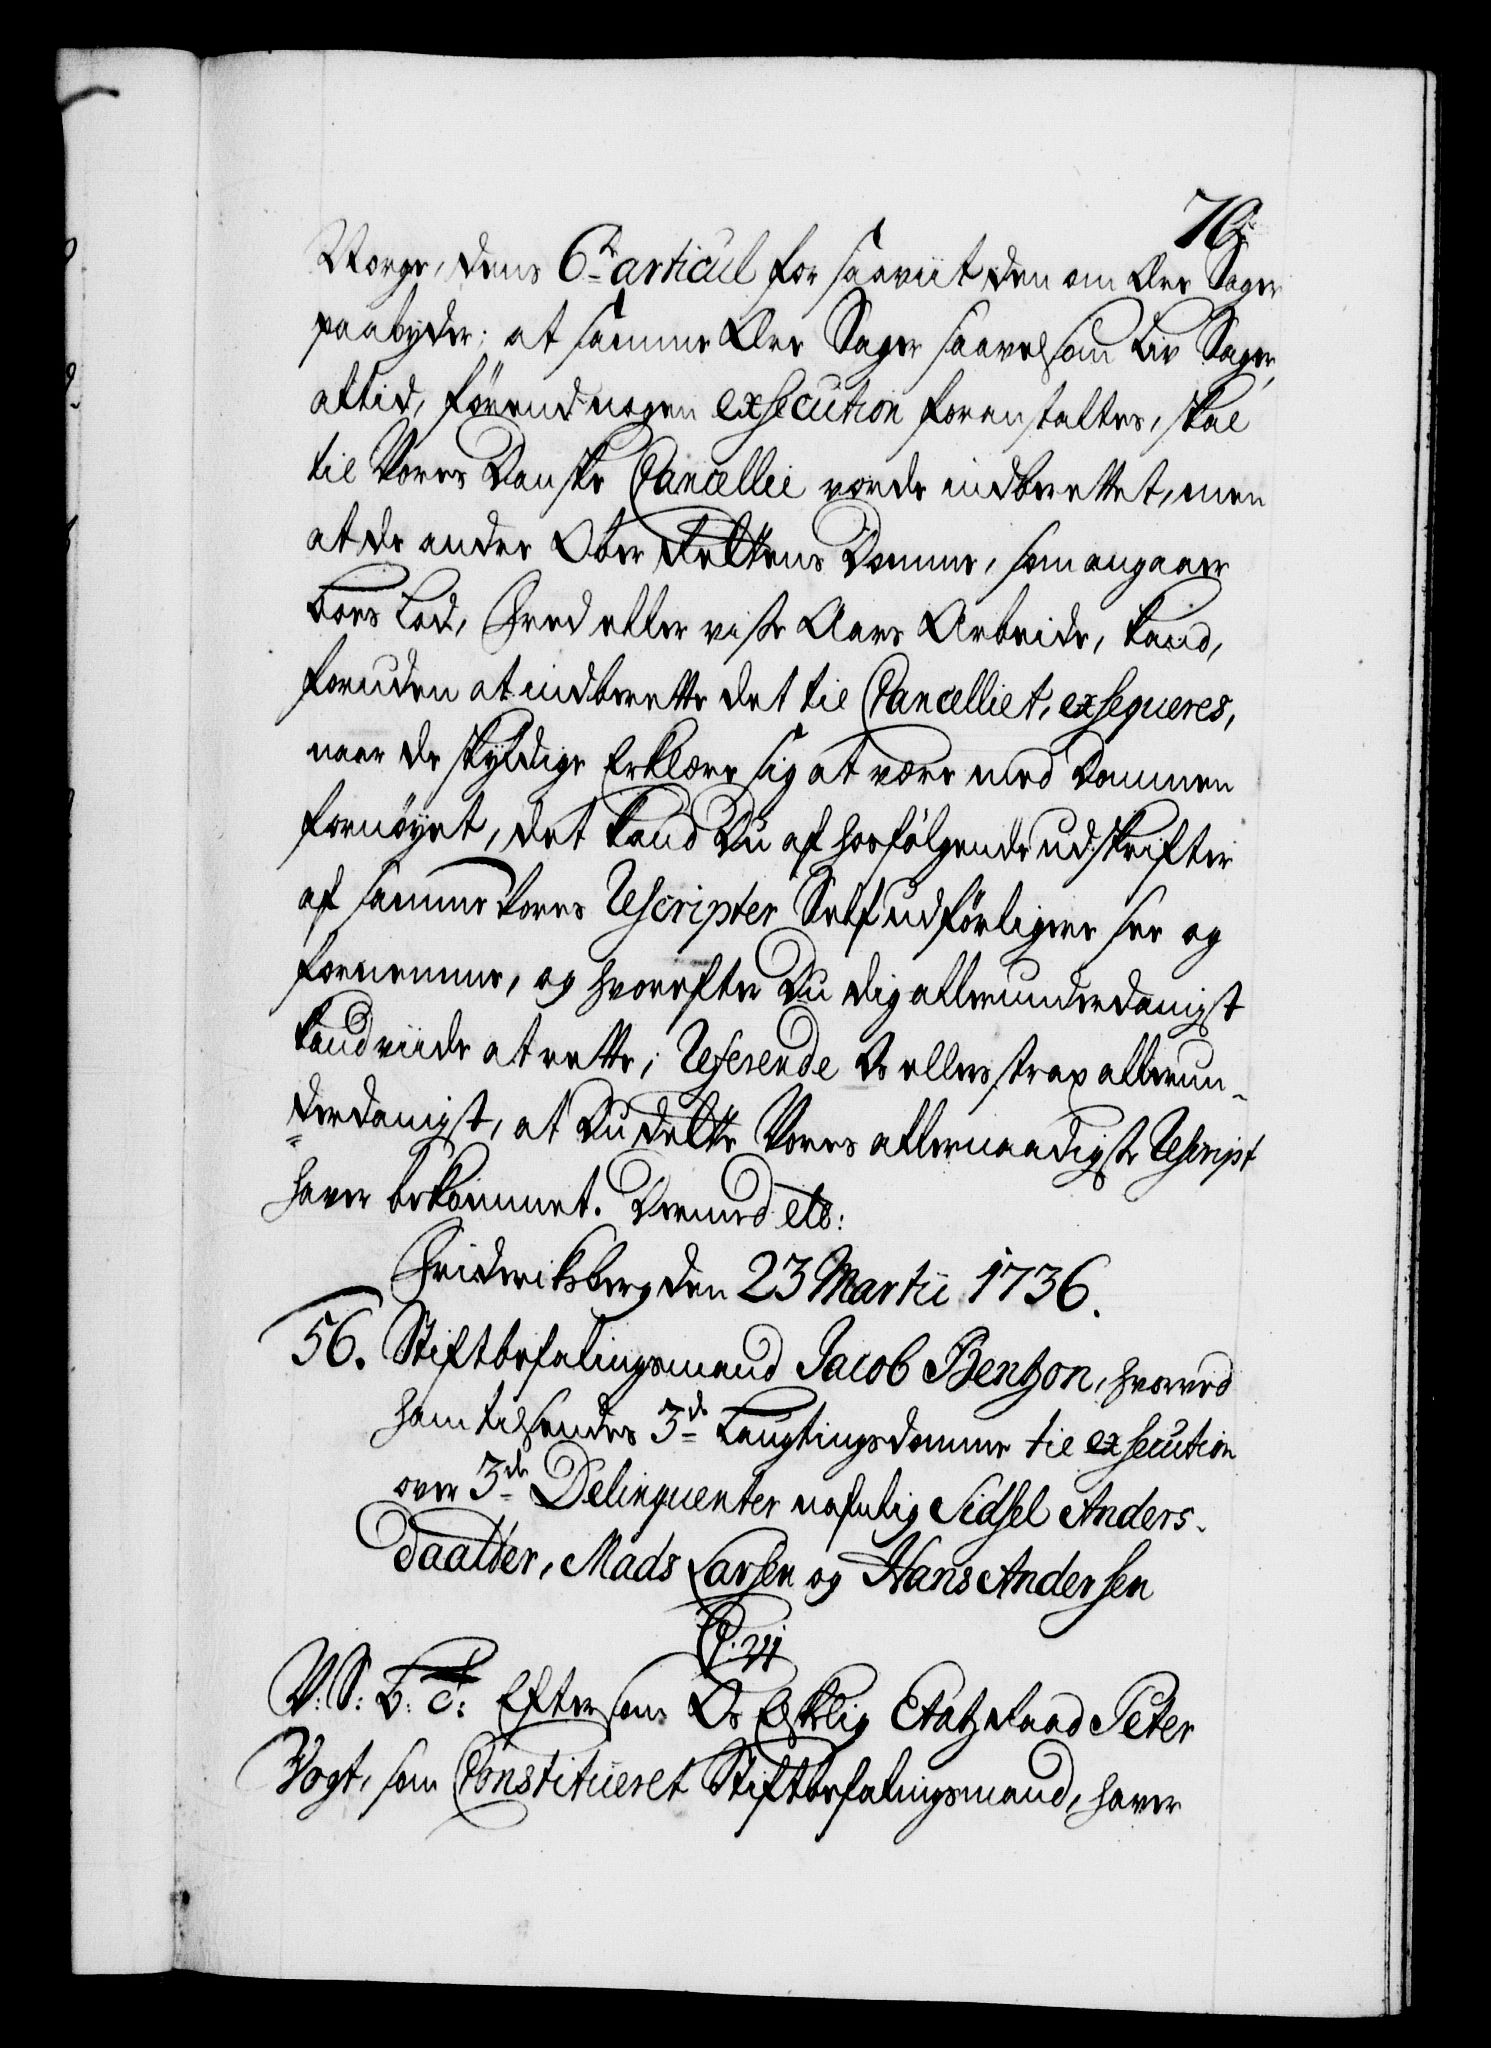 70.
Norge, dens 6te articul for saaviit den om Ære Sager
paabyder; at samme Ære Sager saavelsom Liv Sager,
altid, förend nogen exsecution foranstaltes, skal
til Vores Danske Cancellie vorde indberettet, men
at de andre Ober Rettens Domme, som angaaer
Boes Lod, Fred eller visse Aars Arbeide, kand,
foruden at indberette det til Cancelliet, exseqveres,
naar de skyldige Erklære sig at være med Dommen
fornöyet, det kand Du af hosfölgende udskrifter
af samme Vores Rescripter Self udförligere see og
fornemme, og hvorefter Du dig allerunderdanigst
kand viide at rette; Referende Os ellers strax allerun-
derdanigst, at Du dette Vores allernaadigste Rescript
haver bekommet. Dermed etc:
Friderichsberg den 23 Martii 1736.
56. Stiftbefalingsmand Jacob Bentzon, hvorved
ham tilsendes 3de Laugtingsdomme til exsecution
over 3de Delinquenter nafnlig Sidsel Anders-
daatter, Mads Larsen og Hans Andersen
C. VI
V: S: B: T: Eftersom Os Elskelig Etatzraad Peter
Vogt, som Constitueret Stiftbefalingsmand, haver